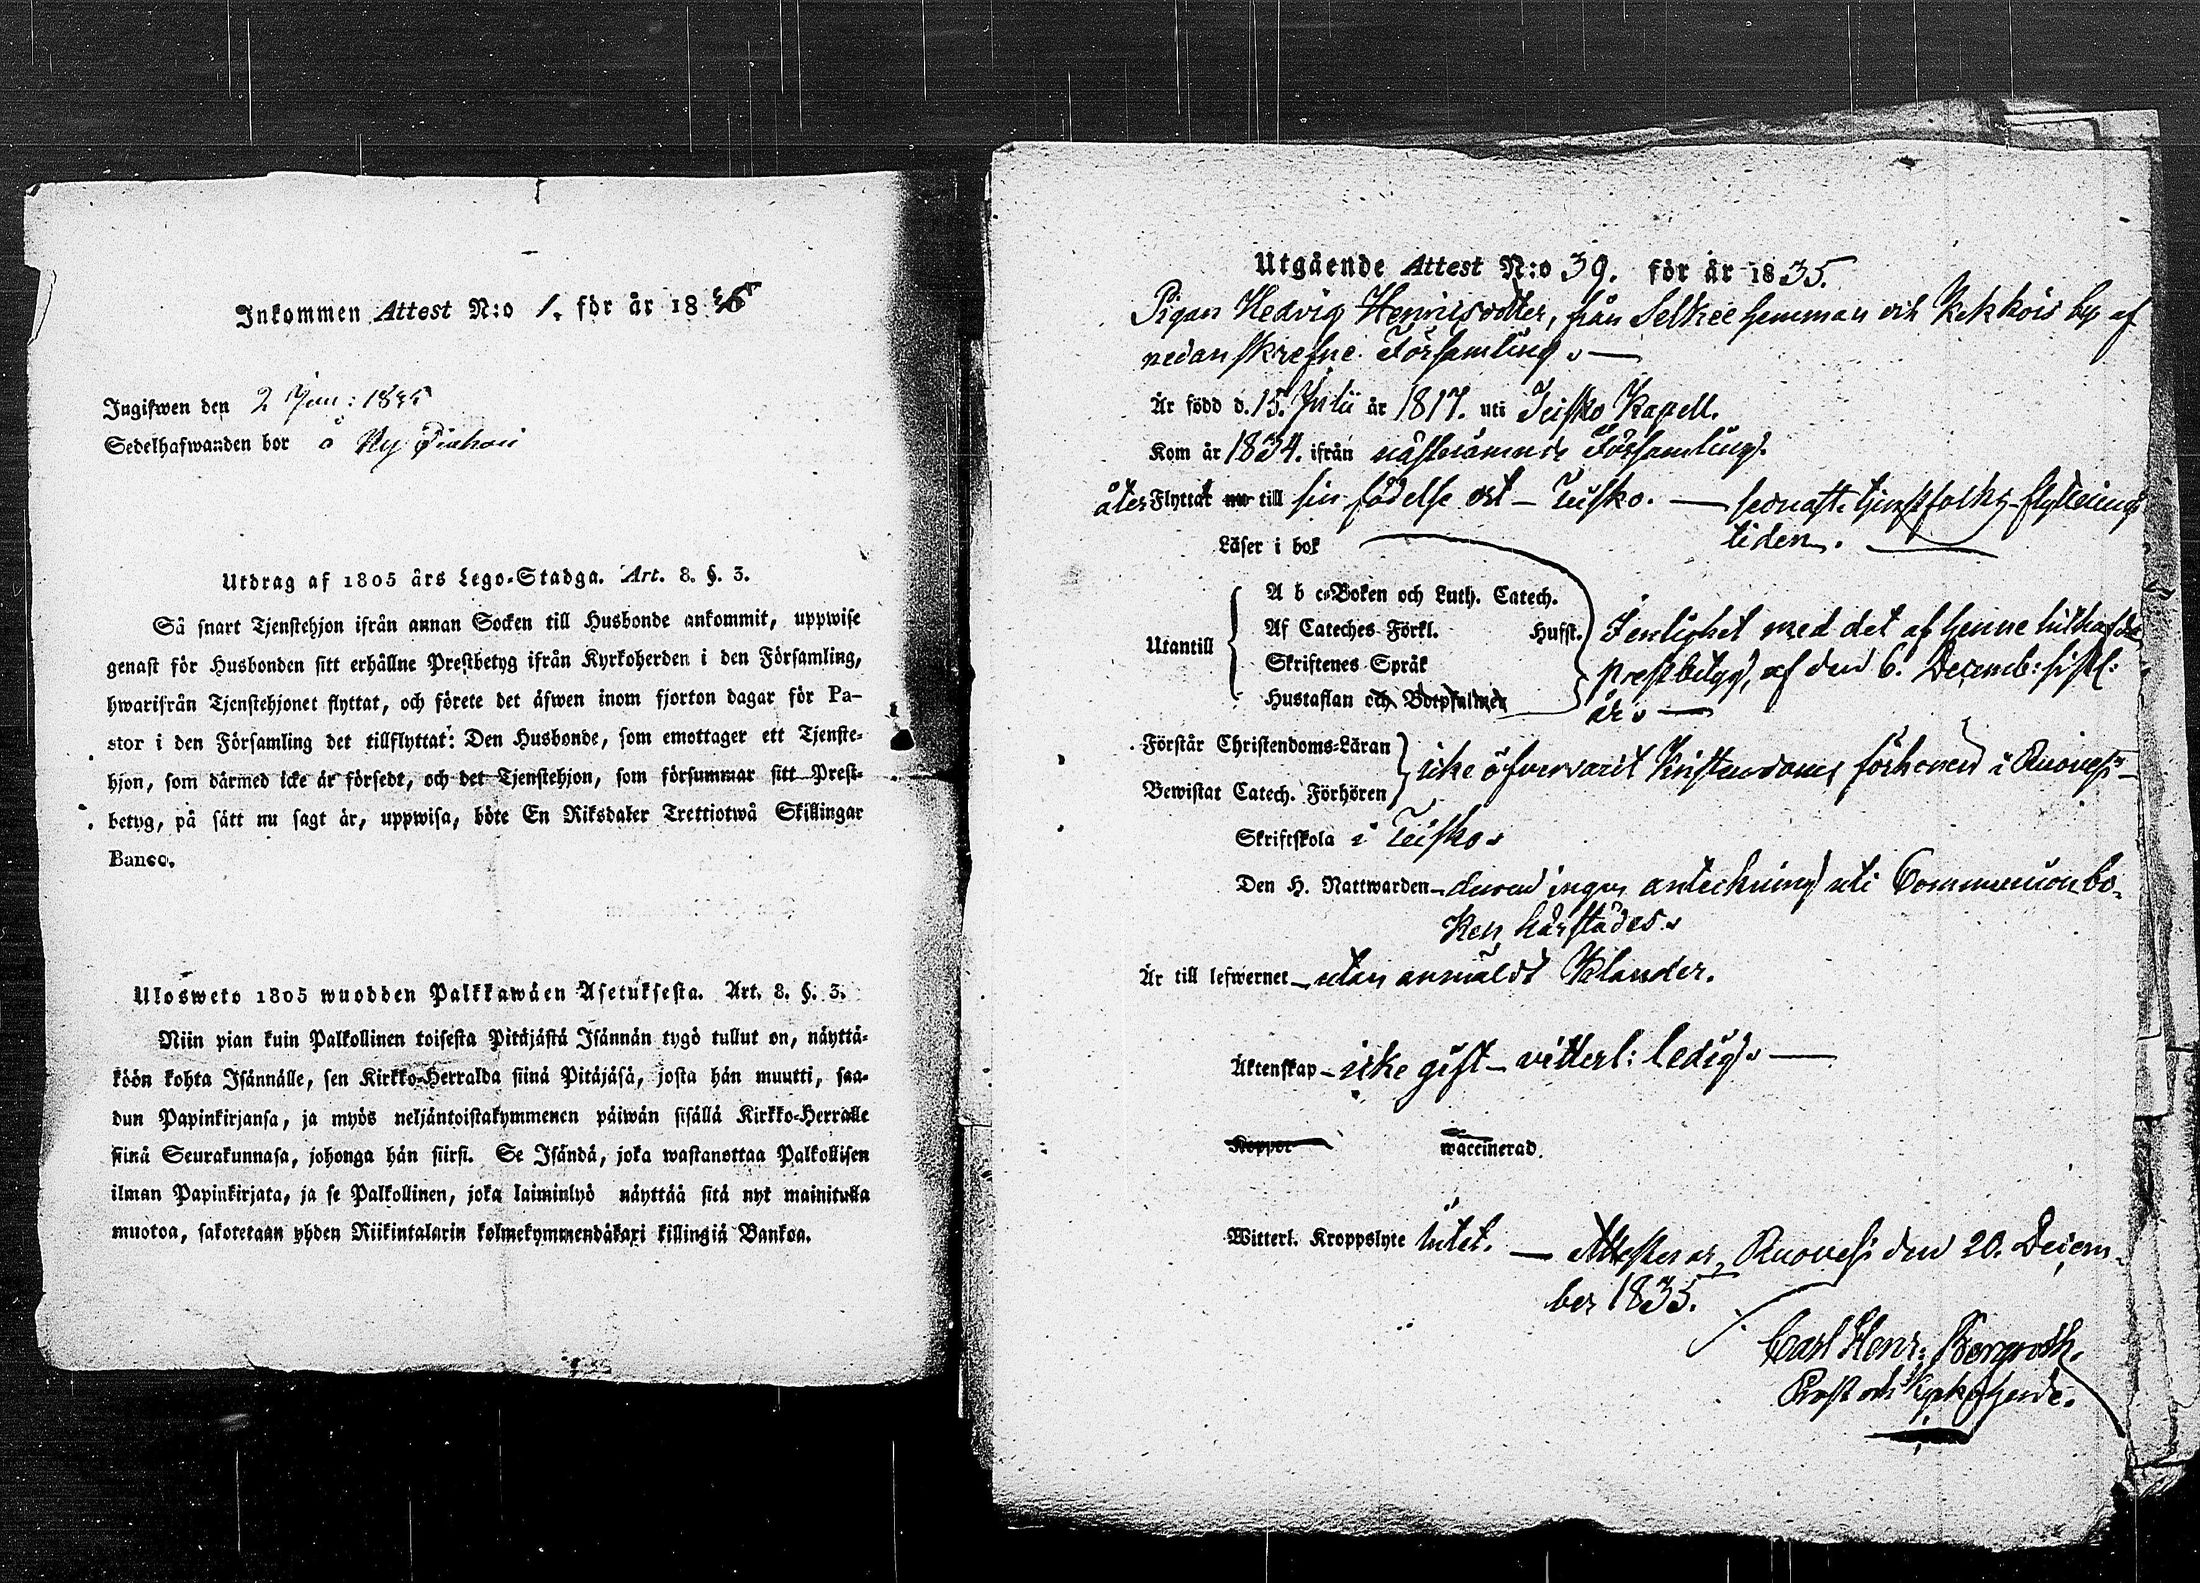 Inkommen Attest N:o 1. för år 18
Ingifwen den 2 Jan: 18
Sedelhafwanden bor å Ny
Utdrag af 1805 års Lego-Stadga. Art. 8. §. 3.
Så snart Tjenstehjon ifrån annan Socken till Husbonde ankommit, uppwise
genast för Husbonden sitt erhållne Prestbetyg ifrån Kyrkoherden i den Församling,
hwarifrån Tjenstehjonet flyttat, och förete det äfwen inom fjorton dagar för Pa-
stor i den Församling det tillflyttat: Den Husbonde, som emottager ett Tjenste-
hjon, som därmed icke är försedt, och det Tjenstehjon, som försummar sitt Prest-
betyg, på sätt nu sagt är, uppwisa, böte En Riksdaler Trettiotwå Skillingar
Banco.
Ulosweto 1805 wuodden Palkkawäen Asetuksesta. Art. 8. §. 3.
Niin pian kuin Palkollinen toisesta Pitäjästä Isännän tygö tullut on, näyttä-
köön kohta Isännälle, sen Kirkko-Herralda siinä Pitäjäsä, josta hän muutti, saa-
dun Papinkirjansa, ja myös neljäntoistakymmenen päiwän sisällä Kirkko-Herralle
siinä Seurakunnasa, johonga hän siirsi. Se Isändä, joka wastanottaa Palkollisen
ilman Papinkirjata, ja se Palkollinen, joka laiminlyö näyttää sitä nyt mainitulla
muotoa, sakotetaan yhden Riikintalarin kolmekymmendäkaxi killingiä Bankoa.
Utgående Attest N:o 39. för år 1835.
Pigan Hedvig Henricsdotter, från Selkee hemman och Kekkois by af
nedanskrefne Församling. —
Är född d. 15. Julii år 1817. uti Teisko Kapell.
Kom år 1834. ifrån nästnämnde Församling.
åter Flyttat nu till sin födelse ort — Teisko. — sednaste tjenstfolks flyttnings
tiden. —
Läser i bok
Utantill
A b c-Boken och Luth. Catech.
Af Cateches Förkl. Hufst.
Skriftenes Språk
Hustaflan och Botpsalmer
I enlighet med det af henne hithafde
prestbetyg, af den 6. Decemb: sistl:
år. —
Förstår Christendoms-Läran
Bewistat Catech. Förhören
icke öfvervarit Kristendoms förhören i Ruovesi —
Skriftskola i Teisko.
Den H. Nattwarden — derom ingen anteckning uti Communionbo-
ken härstädes.
Är till lefwernet — utan anmäldt Klander.
Äktenskap — icke gift — vitterl: ledig. —
Koppor waccinerad.
Witterl. Kroppslyte intet. — Attesterar, Ruovesi den 20. Decem-
ber 1835.
Carl Henr: Bergroth.
Prost och Kyrkoherde.